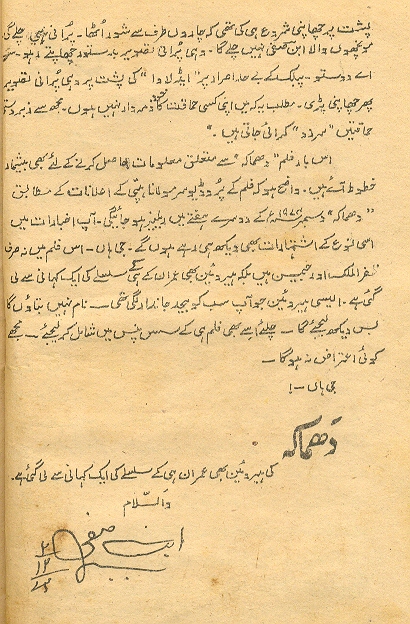 پشت پر چھاپنی شروع ہی کی تھی کہ چاروں طرف سے شور اُٹھا۔ پُرانی نہیں چلے گی
مونچھوں والا ابن صفی نہیں چلے گا۔ وہی پُرانی تصویر بدستور چھاپتے رہو۔
اے دوستو۔ پبلک کے بے حد اصرار پر "ایڈلاوا" کی پشت پر وہی پُرانی تصویر
پھر چھاپنی پڑی۔ مطلب یہ کہ میں اپنی کسی حماقت کا خود ذمہ دار نہیں ہوں۔ مجھ سے زبردستی
حماقتیں "سرزد" کرائی جاتی ہیں۔
اس بار فلم "دھماکہ" سے متعلق معلومات حاصل کرنے کے لئے بھی بیشمار
خطوط آئے ہیں۔ واضح ہو کہ فلم کے پروڈیوسر مولانا ہپّی کے اعلانات کے مطابق
"دھماکہ" دسمبر ۱۹۷۴ء کے دوسرے ہفتے میں ریلیز ہو جائیگی۔ آپ اخبارات میں
اسی نوع کے اشتہارات بھی دیکھ ہی رہے ہوں گے۔ جی ہاں۔ اس فلم میں نہ صرف
ظفر الملک اور جیمسن ہیں بلکہ ہیروئین بھی عمران ہی کے سلسلے کی ایک کہانی سے لی
گئی ہے۔ ایسی ہیروئین جو آپ سب کو بیحد جاندار لگی تھی۔ نام نہیں بتاؤں گا
بس دیکھ لیجئے گا۔ چلئے اِسے بھی فلم ہی کے سسپنس میں شامل کر لیجئے۔ مجھے
کوئی اعتراض نہ ہوگا۔
جی ہاں۔!
دَھماکہ
کی ہیروئین بھی عمران ہی کے سلسلے کی ایک کہانی سے لی گئی ہے۔
والسّلام
ابن صفی